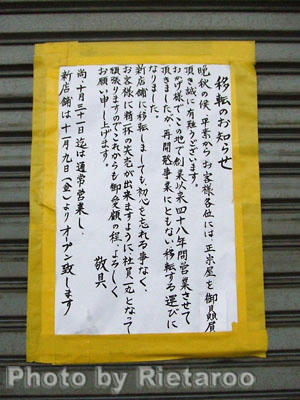 移転のお知らせ
晩秋の候、平素からお客様各位には正宗屋を御贔屓
頂き誠に有難うございます。
おかげ様で、この地で創業以来四十八年間営業させて
頂きましたが、再開発事業にともない移転する運びに
なりました。
新店舗に移転しましても、初心を忘れる事なく、
お客様に精一杯の天売が出来ますように、社員一丸となって
頑張りますのでこれからも御愛顧の程、よろしく
お願い申し上げます。
敬具
尚、十月三十一日迄は通常営業し、
新店舗は十一月九日(金)よりオープン致します
Photo by Rietaroo